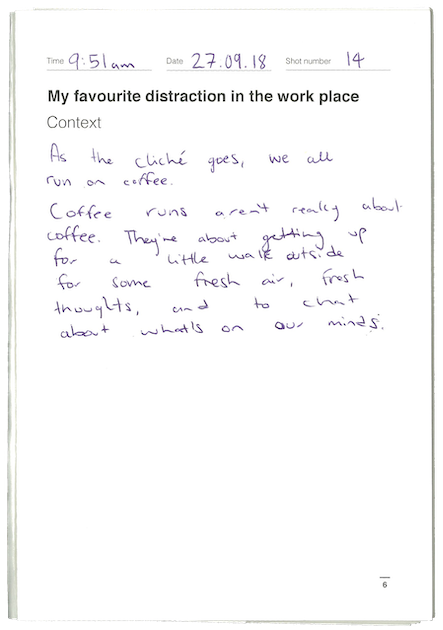 Time 9:51am Date 27.09.18 Shot number 14
My favourite distraction in the work place
Context
As the cliché goes, we all
run on coffee.
Coffee runs aren't really about
coffee. They're about getting up
for a little walk outside
for some fresh air, fresh
thoughts, and to chat
about what's on our minds.
6